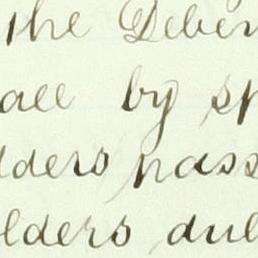 the Deben
all by sp
lders pass
lders dul